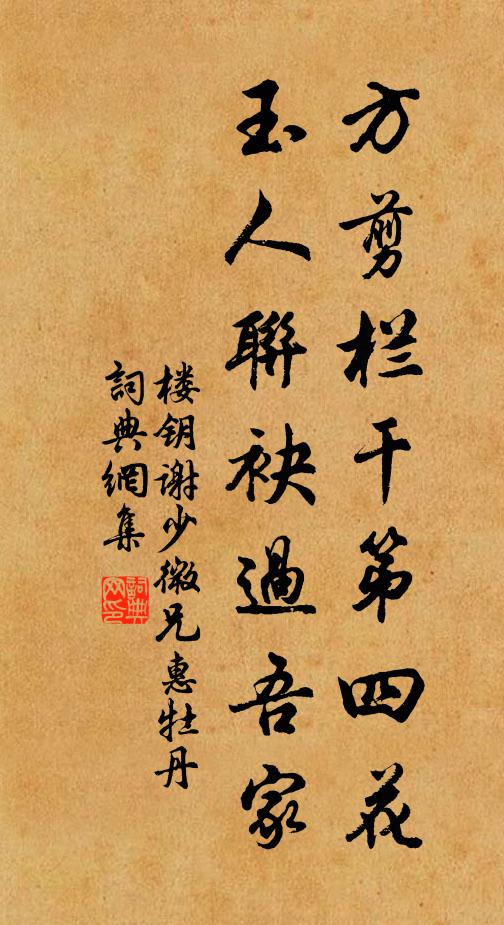 方剪栏干第四花
玉人聯袂過吾家
楼钥谢少微兄惠牡丹
詞典網集
詞典网印